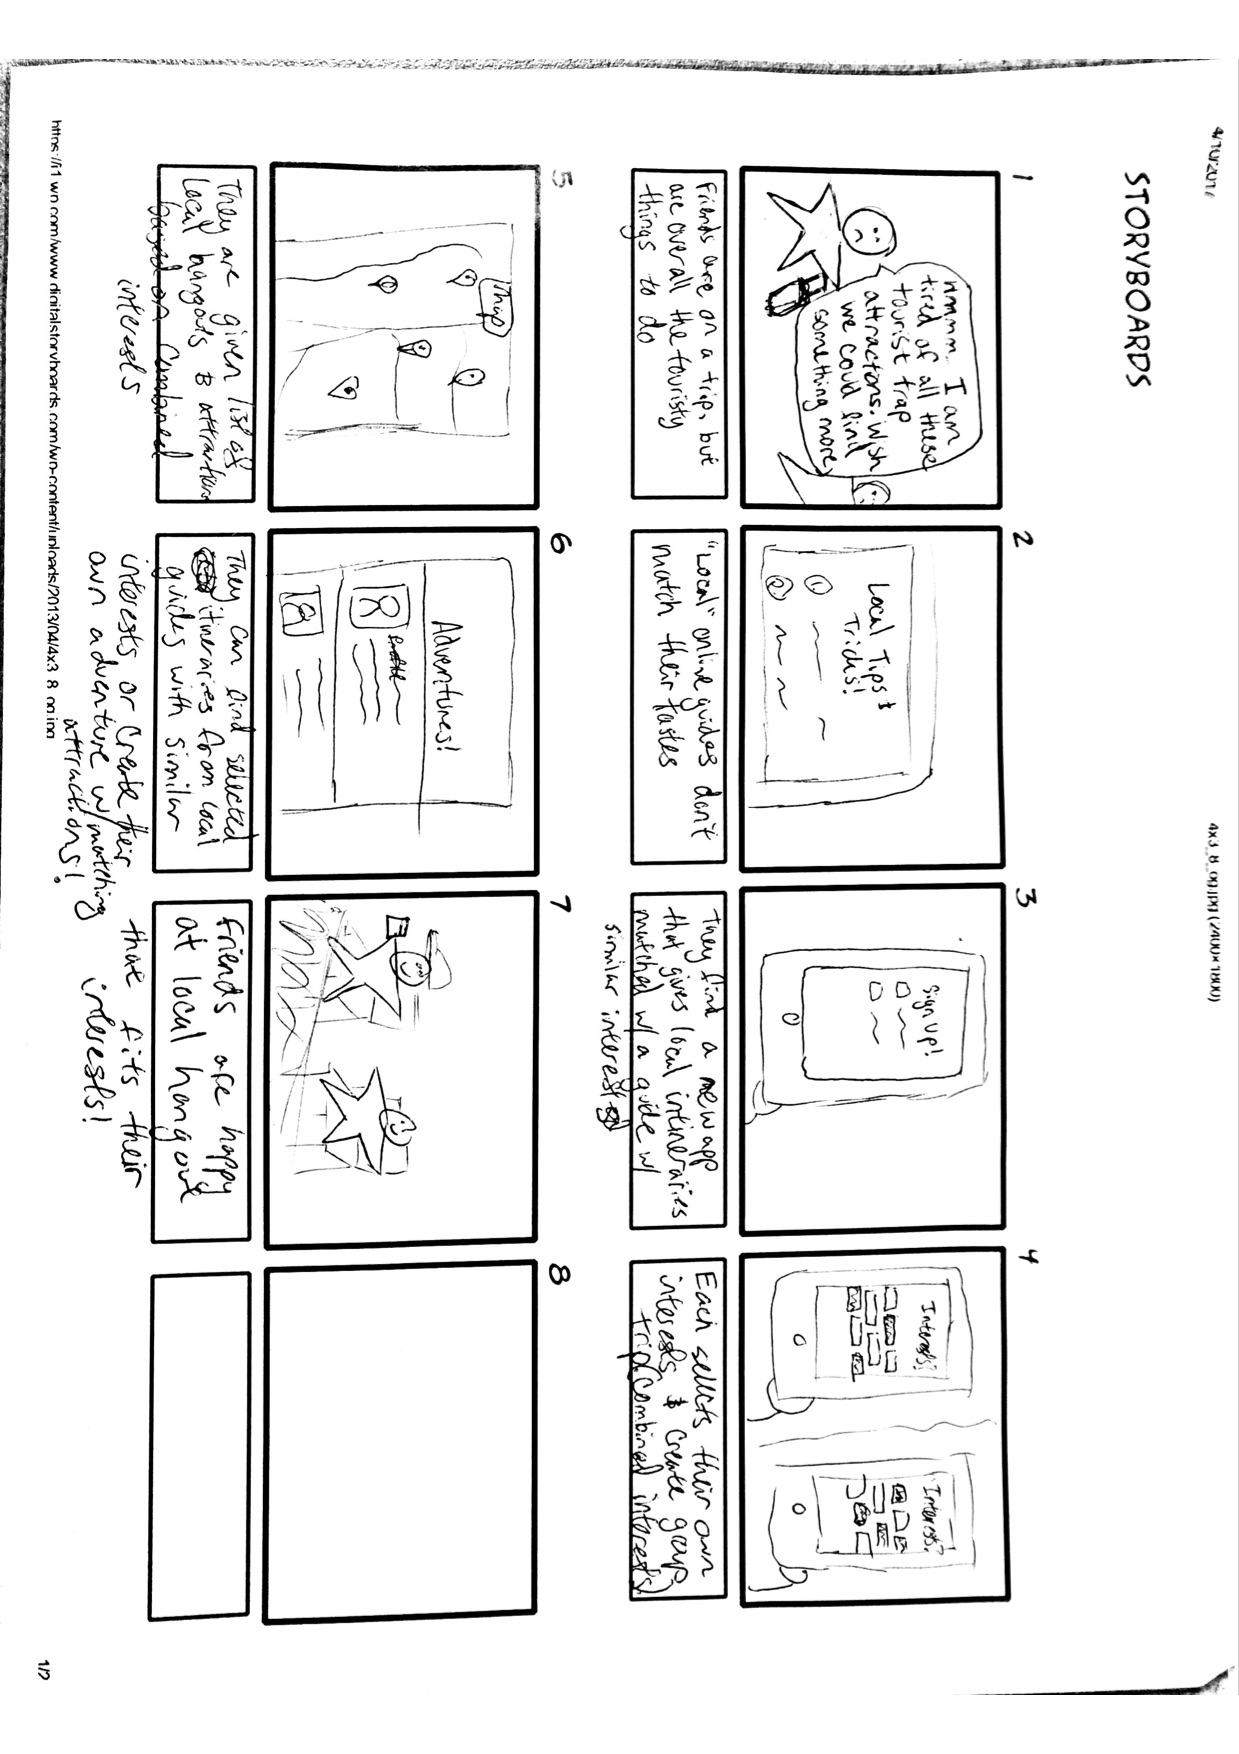 STORYBOARDS
1
Hmmm.. I am
tired of all these
tourist trap
attractions. Wish
we could find
something more
Friends are on a trip, but
are overall the touristy
things to do
2
Local Tips &
Tricks!
1
2
"Local" online guides don't
match their tastes
3
Sign Up!
They find a new app
that gives local intineraries
matched w/ a guide w/
similar interest
4
Interests?
Interests?
Each selects their own
interests & create group
trip (combined interests)
5
Map
They are given list of
local hangouts & attractions
based on combined
interests
6
Adventures!
They can find selected
itineraries from local
guides with similar
interests or create their
own adventure w/ matching
attractions!
7
Friends are happy
at local hangout
that fits their
interests!
8
1/2